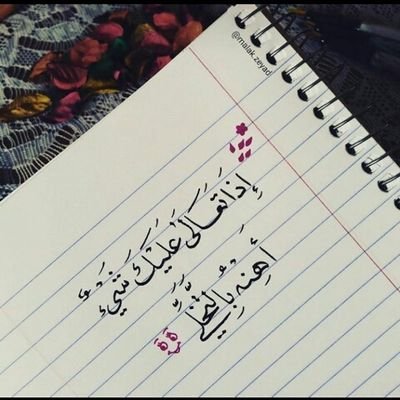 @malak.zeyad
إِذَا تَعَالَىٰ عَلَيْكَ شَيْءٌ
أَهِنْهُ بِالتَّخَلِّي